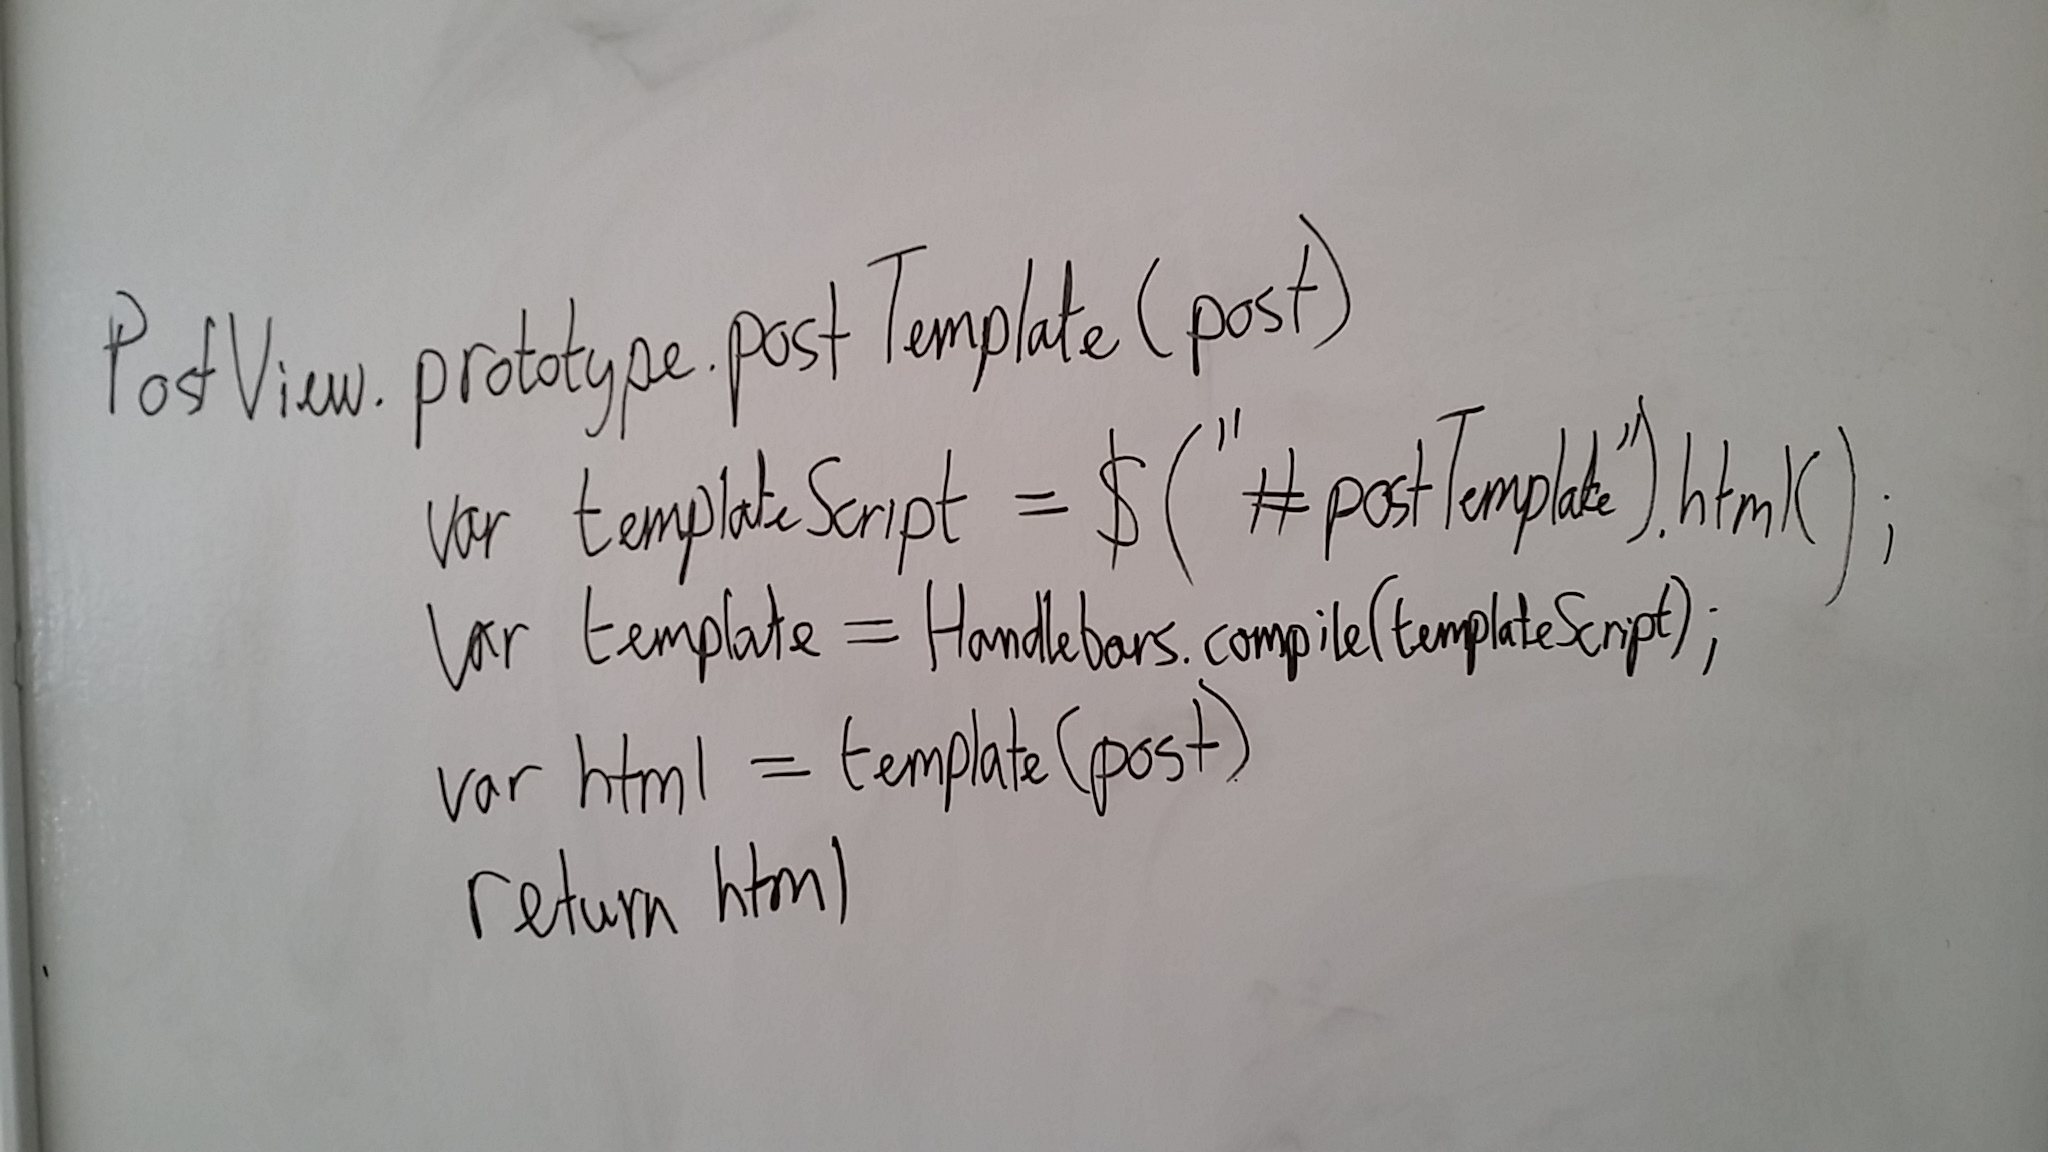 PostView.prototype.postTemplate(post)
var templateScript = $("#postTemplate").html();
var template = Handlebars.compile(templateScript);
var html = template(post)
return html